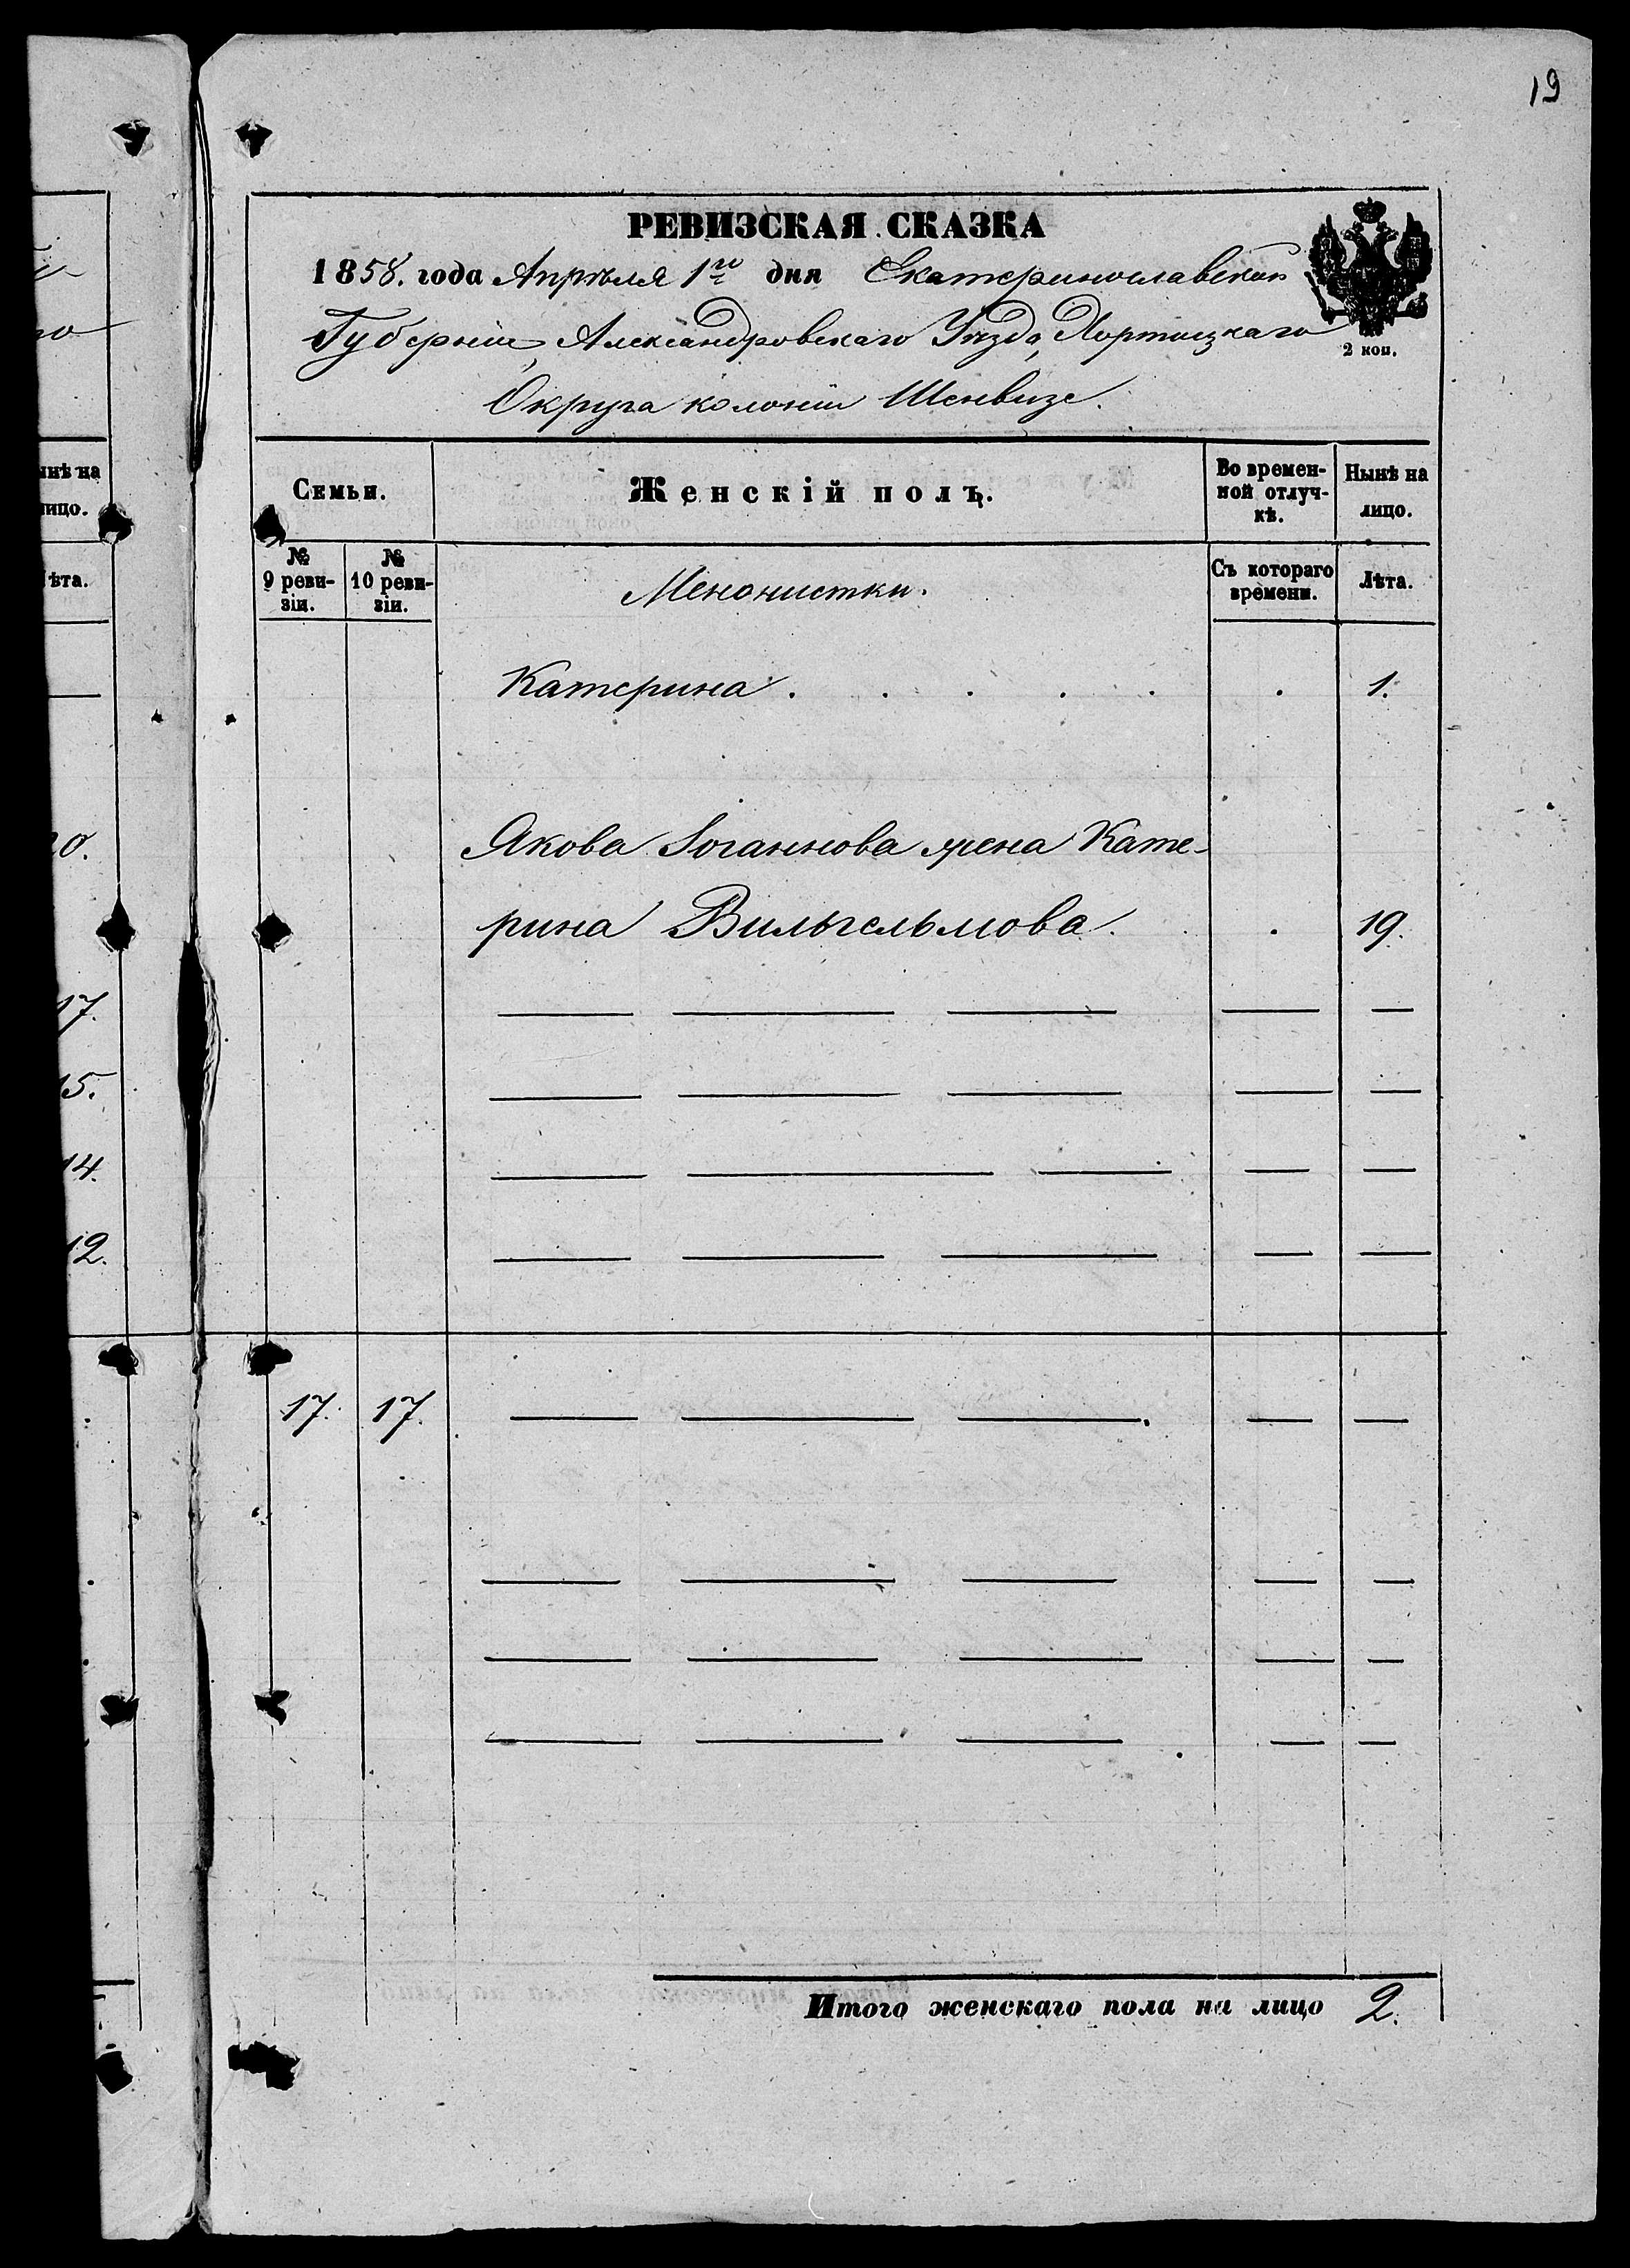 19
РЕВИЗСКАЯ СКАЗКА
1858. года Апрѣля 1го дня Екатеринославской
Губерніи, Александровскаго Уѣзда, Хортицкаго
2 коп.
Округа колоніи Шенвизе.
Семьи.
Женскій полъ.
Во времен-
ной отлуч-
кѣ.
Нынѣ на
лицо.
№
9 реви-
зіи.
№
10 реви-
зіи.
Менонистки.
Съ котораго
времени.
Лѣта.
Катерина . . . . . . 1.
Якова Іоганнова жена Кате-
рина Вильгельмова. . 19.
17. 17.
Итого женскаго пола на лицо 2.
ынѣ на
лицо.
Лѣта.
17.
15.
14.
12.